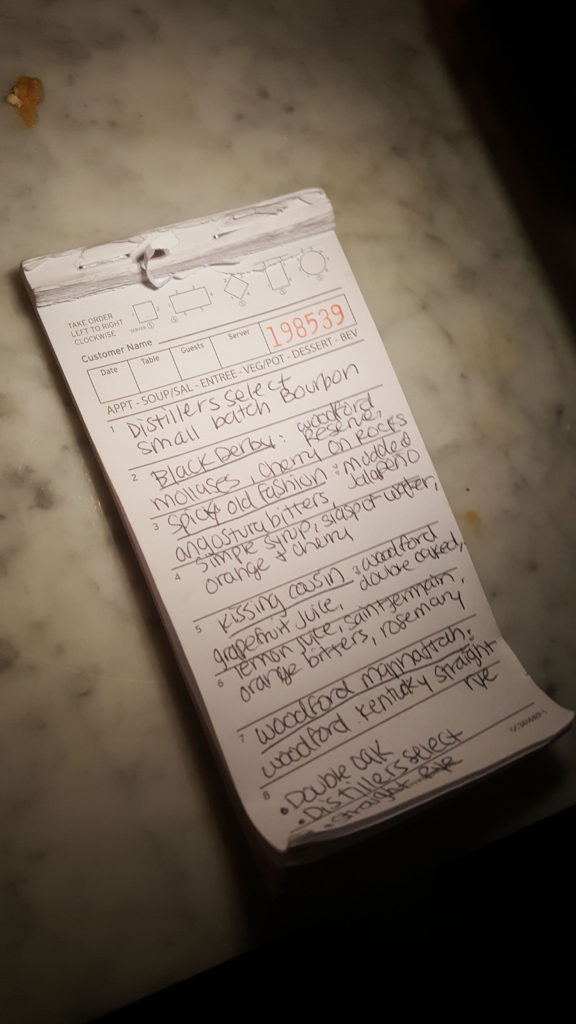 TAKE ORDER
LEFT TO RIGHT
CLOCKWISE
Customer Name
Date Table Guests Server 198539
APPT - SOUP/SAL - ENTREE - VEG/POT - DESSERT - BEV
1 Distillers select
small batch Bourbon
2 Black Derby: woodford
Reserve,
mollases, cherry on Rocks
3 Spicy old fashion: muddled
angostura bitters, Jalapeño
4 simple sirup, sugspot water,
orange + cherry
5 kissing cousin: woodford
grapefruit juice, double oaked,
6 lemon juice, saint germain,
orange bitters, rosemary
7 woodford manhattan:
woodford kentucky straight
rye
8 • Double oak
• Distillers select
• straight rye